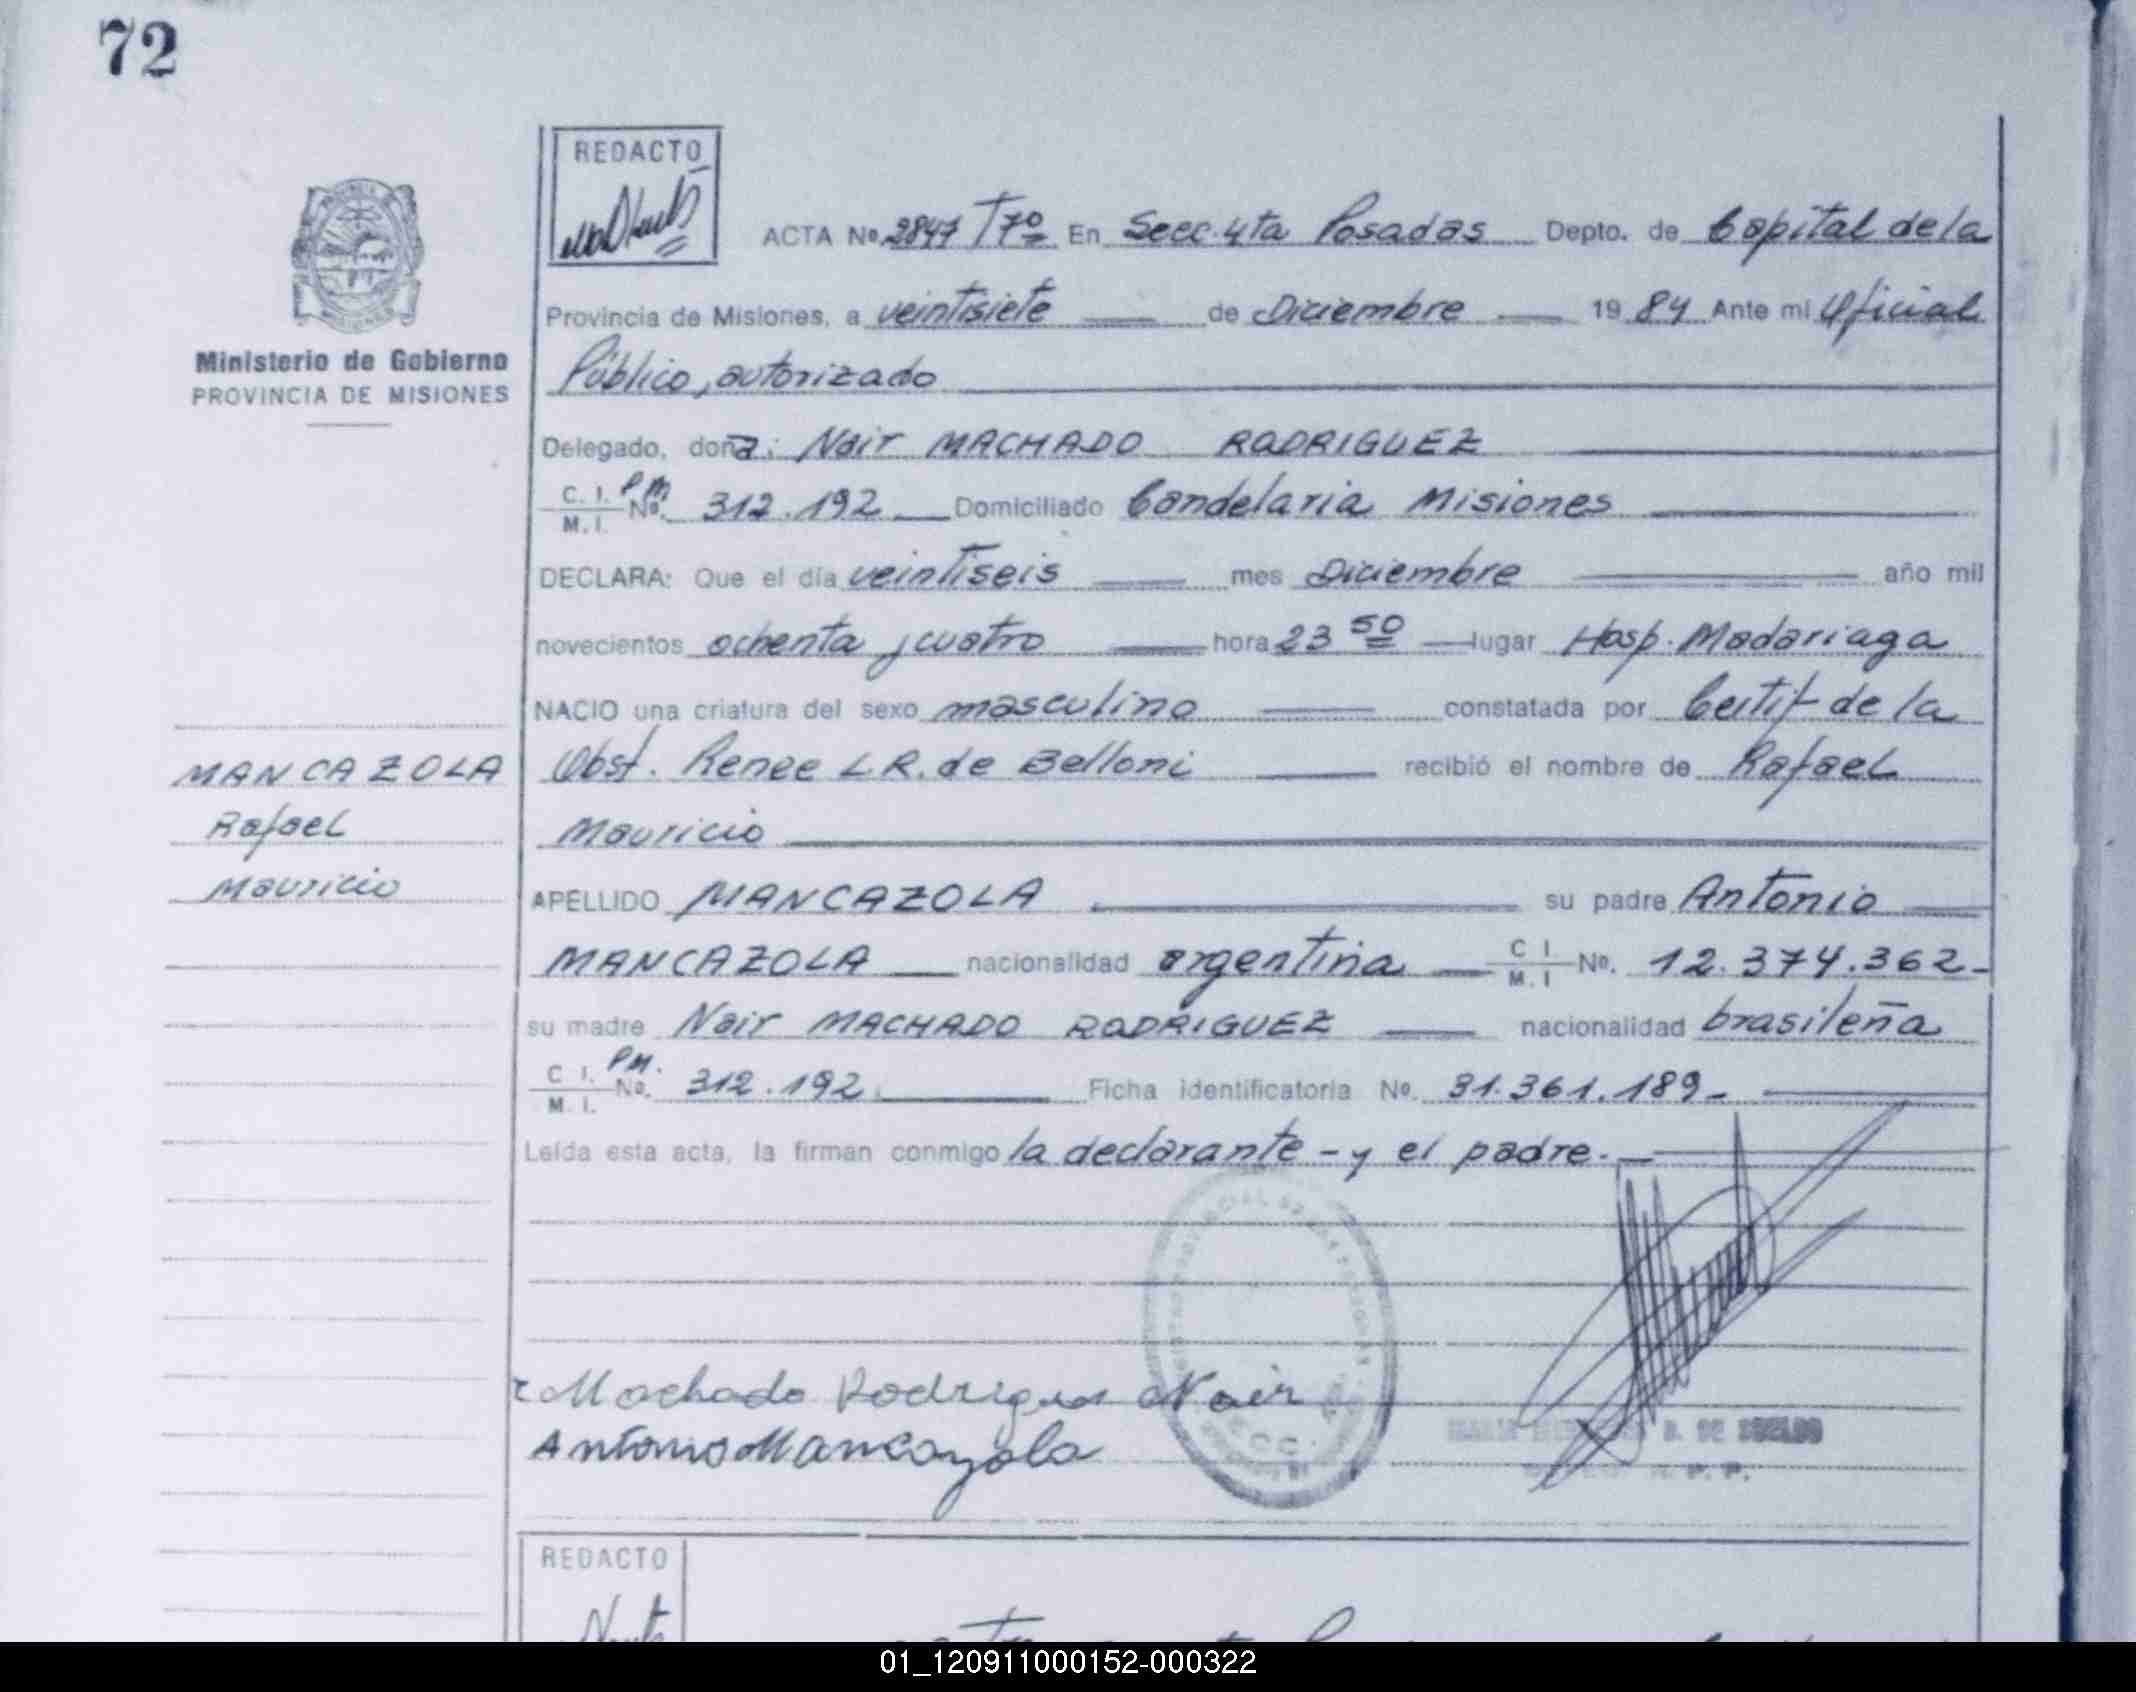 72
REDACTO
ACTA No. 2847 T7º En Secc. 4ta Posadas Depto. de Capital de la
Provincia de Misiones, a veintisiete de Diciembre 19 84 Ante mi Oficial
Ministerio de Gobierno
PROVINCIA DE MISIONES
Público, autorizado
Delegado, doña: Nair MACHADO RODRIGUEZ
C. I. P.M.
M. I. No. 312.192 Domiciliado Candelaria Misiones
DECLARA: Que el día veintiseis mes Diciembre año mil
novecientos ochenta y cuatro hora 23 50 lugar Hosp. Madariaga
NACIO una criatura del sexo masculino constatada por Certif. de la
Obst. Renee L.R. de Belloni recibió el nombre de Rafael
Mauricio
MANCAZOLA
Rafael
Mauricio
APELLIDO MANCAZOLA su padre Antonio
MANCAZOLA nacionalidad argentina C I M. I No. 12.374.362-
su madre Nair MACHADO RODRIGUEZ nacionalidad brasileña
C I. P.M.
M. I. No. 312.192 Ficha identificatoria No. 31.361.189-
Leída esta acta, la firman conmigo la declarante - y el padre.-
Machado Rodriguez Nair
Antonio Mancazola
REDACTO
01_120911000152-000322